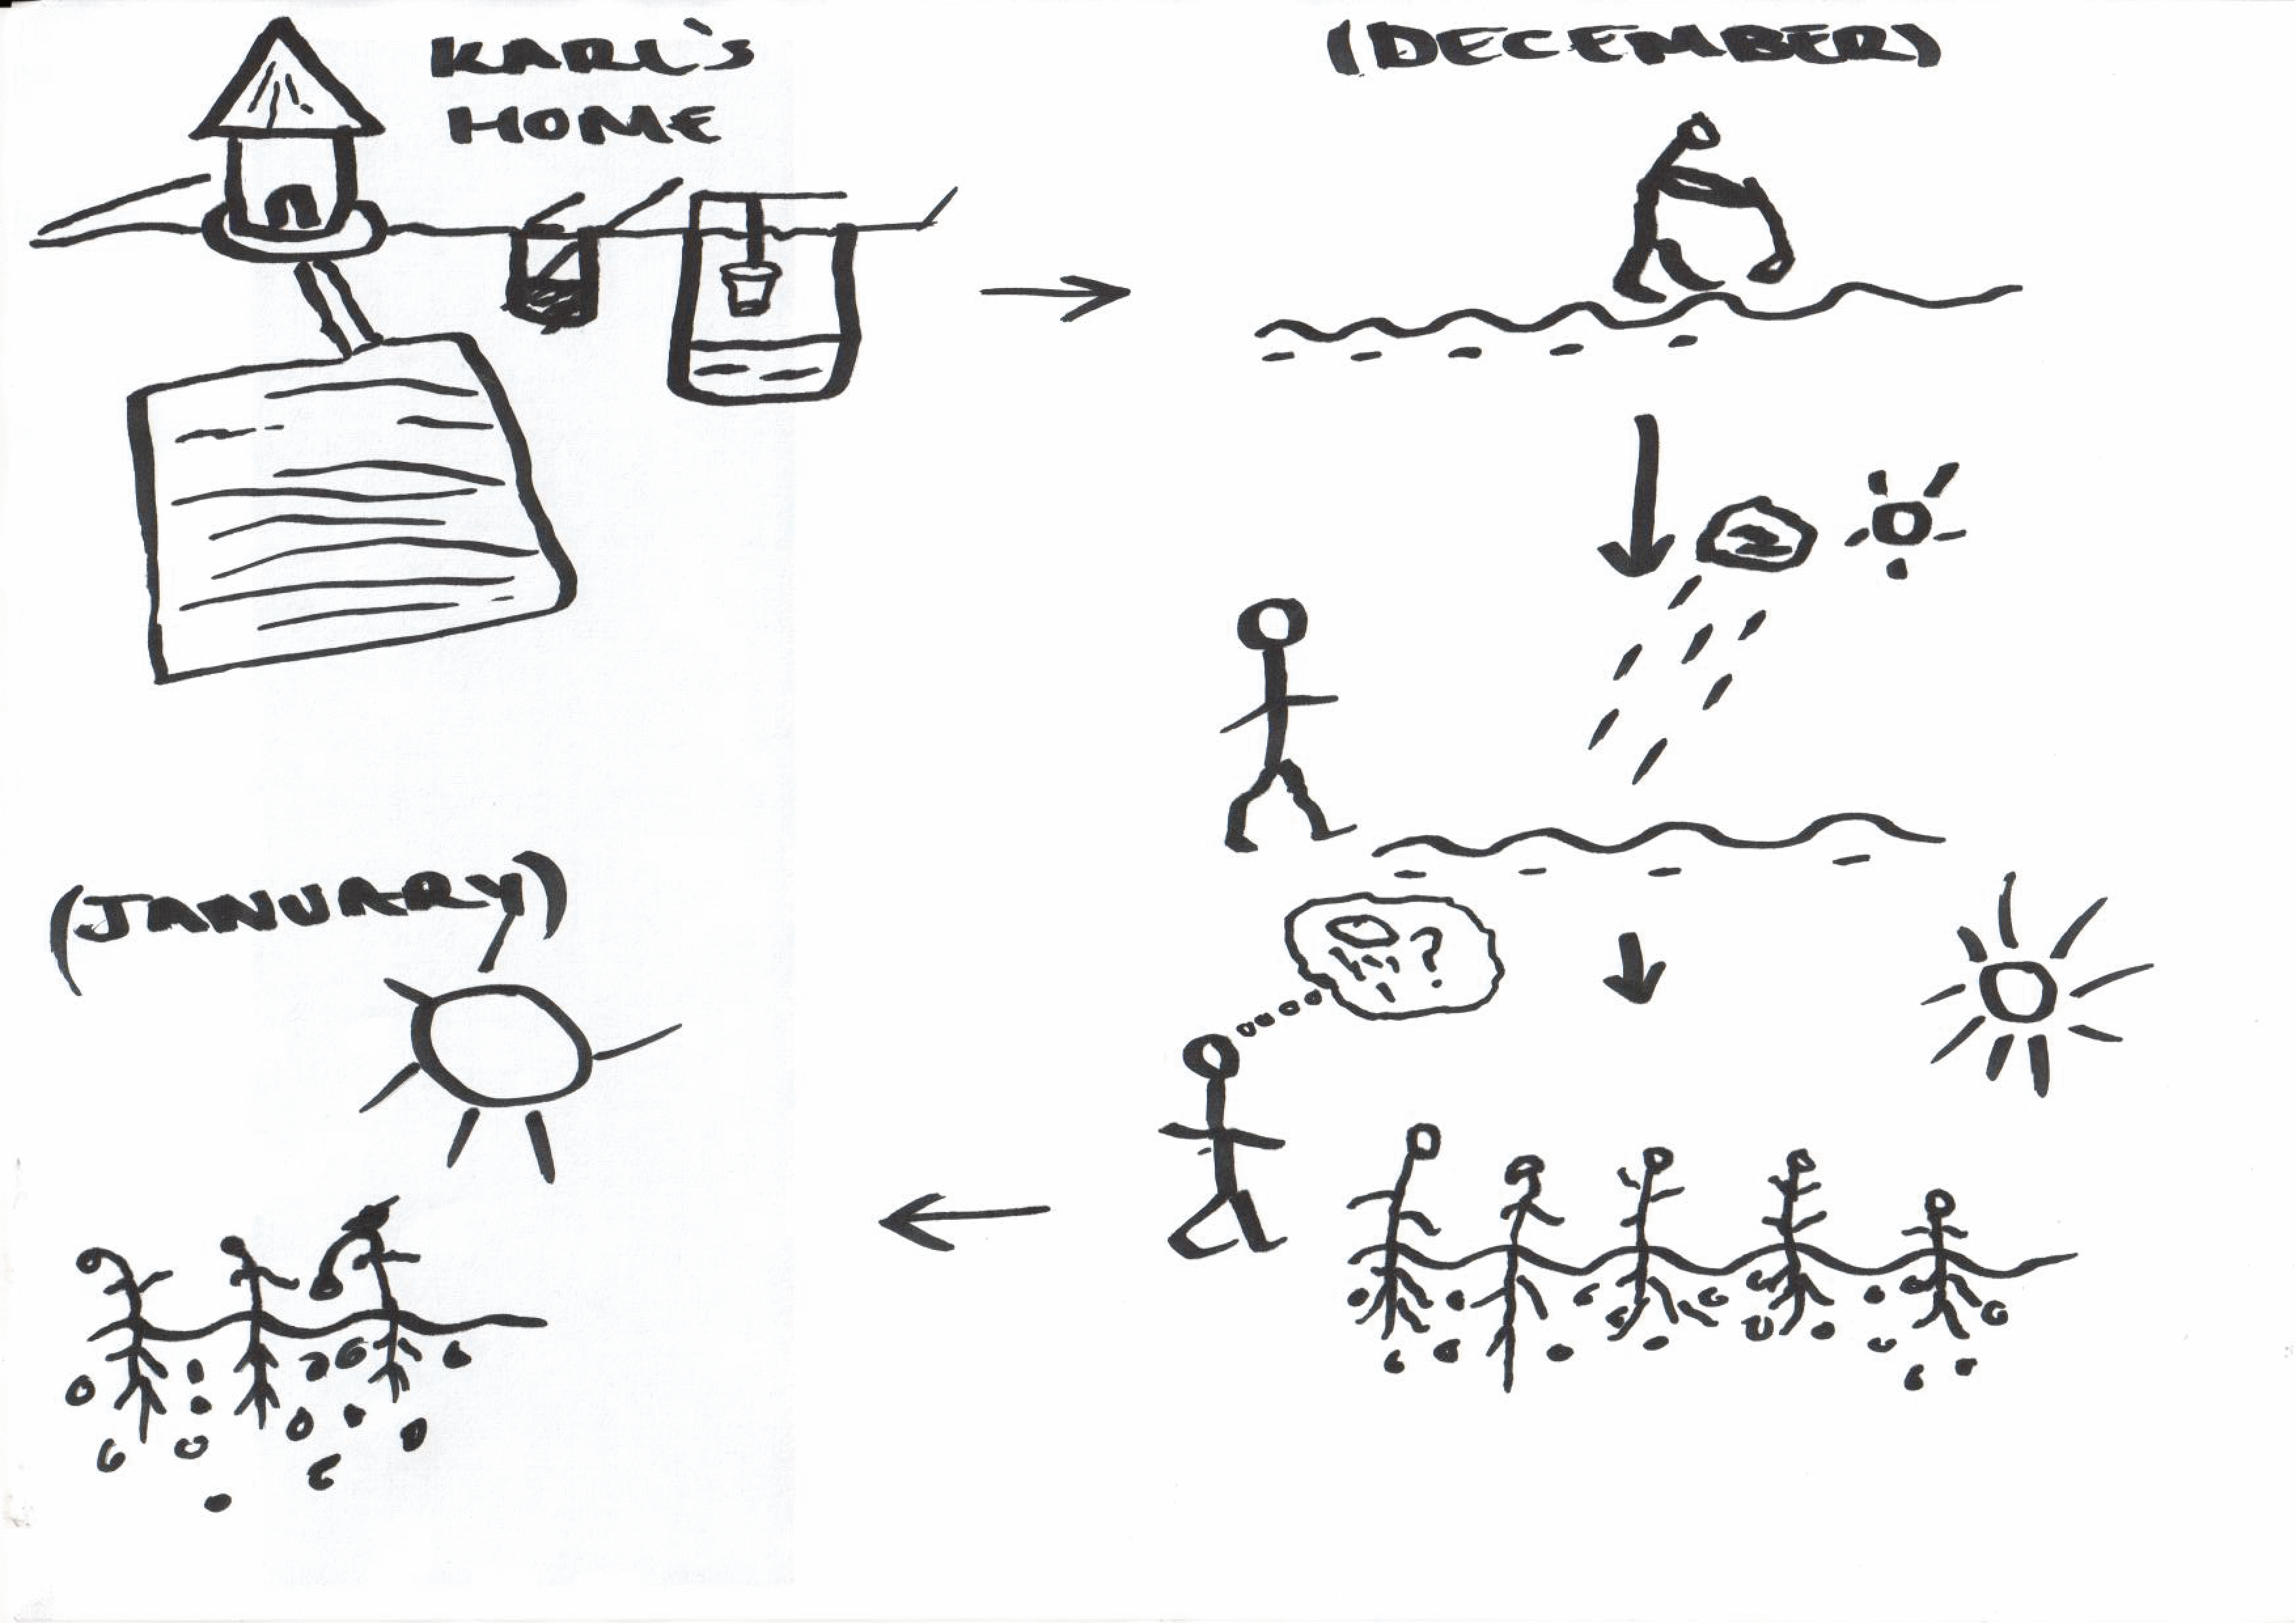 KARL's
HOME
(DECEMBER)
?
(JANUARY)